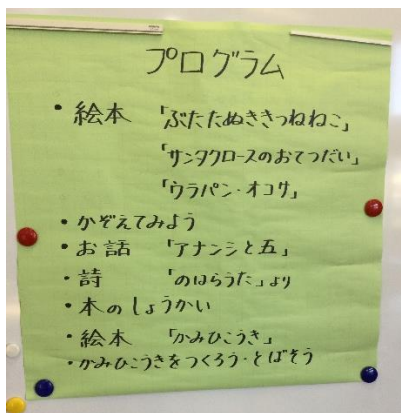 プログラム
・絵本 「ぶたたぬききつねねこ」
「サンタクロースのおてつだい」
「ウラパン・オコサ」
・かぞえてみよう
・お話 「アナンシと五」
・詩 「のはらうた」より
・本のしょうかい
・絵本 「かみひこうき」
・かみひこうきをつくろう・とばそう